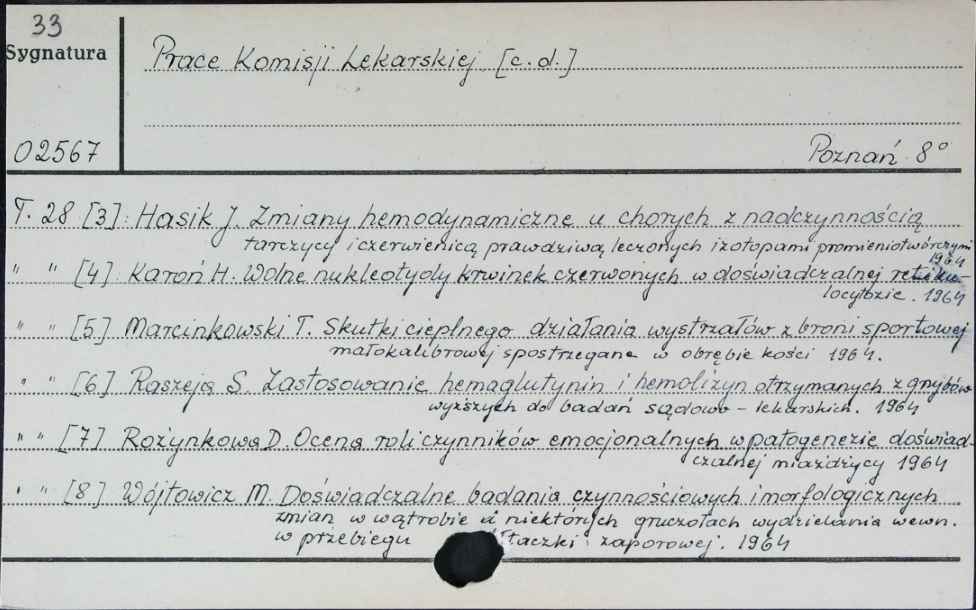 33
Sygnatura
Prace Komisji Lekarskiej [c.d.]
02567
Poznań 8°
T. 28 [3]: Hasik J. Zmiany hemodynamiczne u chorych z nadczynnością
tarczycy i czerwienicą prawdziwą leczonych izotopami promieniotwórczymi
1964
" " [4]: Karoń H. Wolne nukleotydy krwinek czerwonych w doświadczalnej retiku-
locytozie. 1964
" " [5] Marcinkowski T. Skutki cieplnego działania wystrzałów z broni sportowej
małokalibrowej spostrzegane w obrębie kości 1964.
" " [6] Raszeja S. Zastosowanie hemaglutynin i hemolizyn otrzymanych z grzybów
wyższych do badań sądowo-lekarskich. 1964
" " [7] Rożynkowa D. Ocena roli czynników emocjonalnych w patogenezie doświad-
czalnej miażdżycy 1964
" " [8] Wójtowicz M. Doświadczalne badania czynnościowych i morfologicznych
zmian w wątrobie i niektórych gruczołach wydzielania wewn.
w przebiegu łtaczki zaporowej. 1964